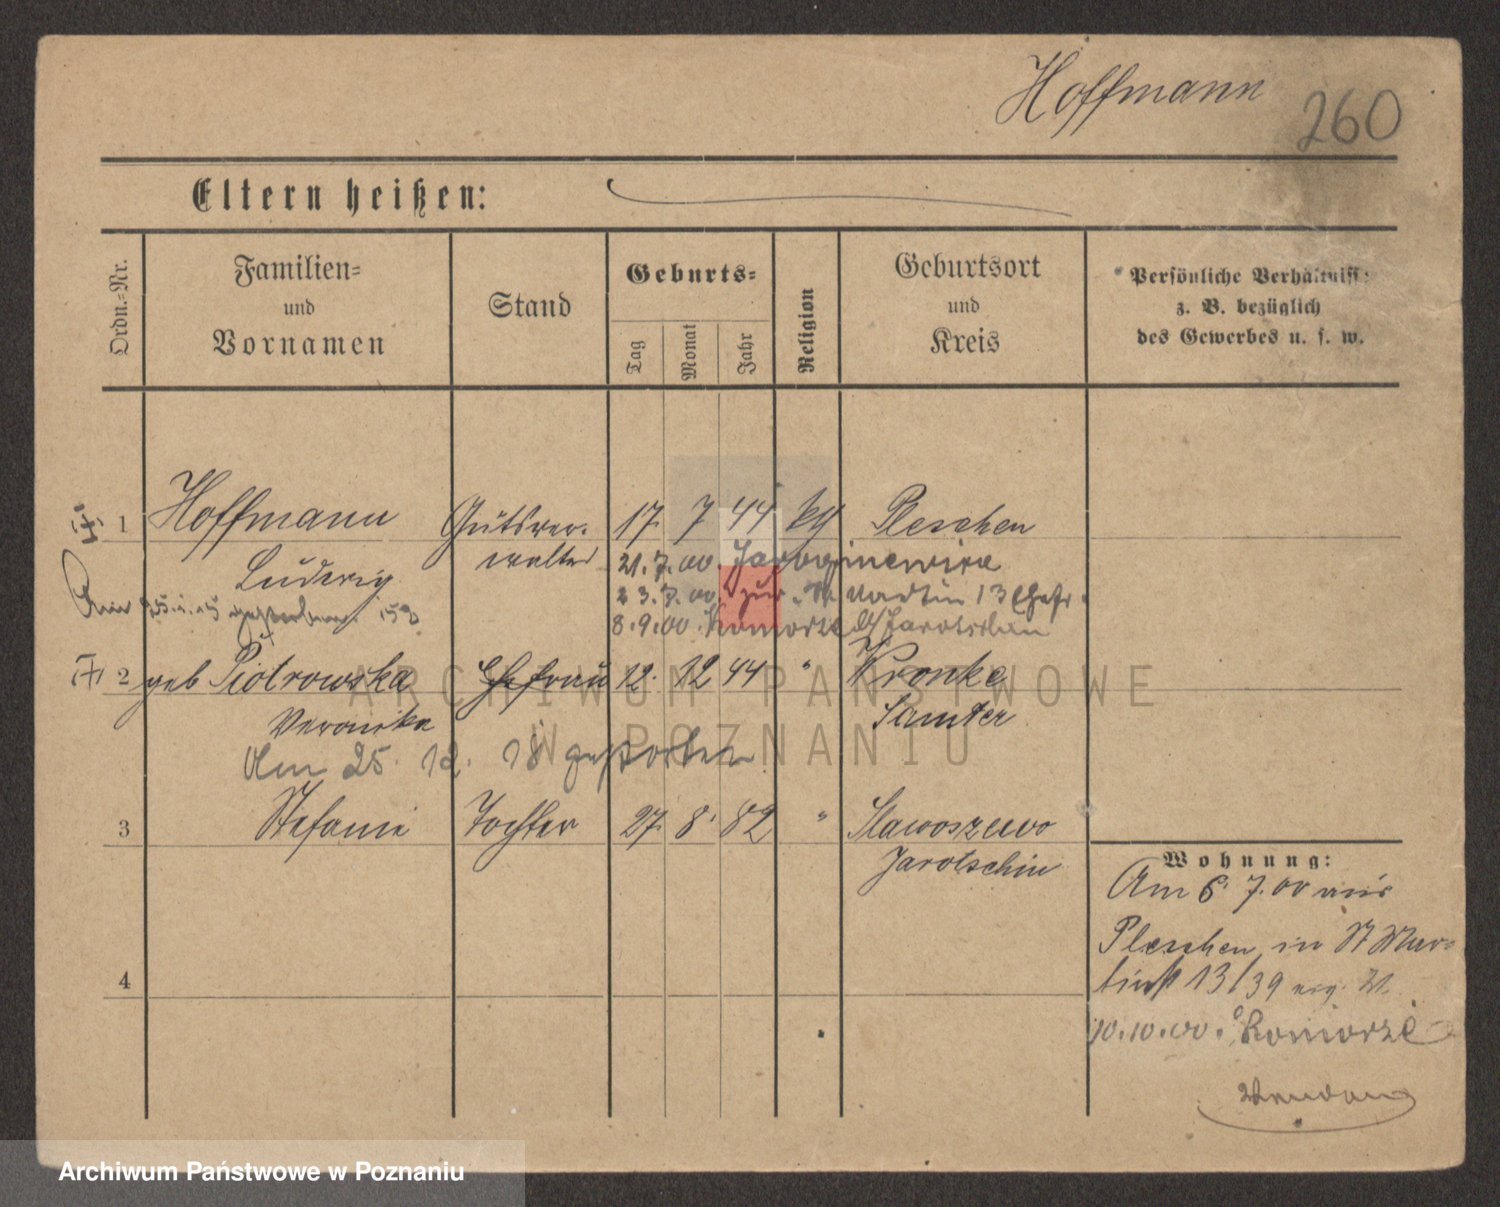 Hoffmann 260
Eltern heißen:
Ordn.=Nr.
Familien=
und
Vornamen
Stand
Geburts=
Tag
Monat
Jahr
Religion
Geburtsort
und
Kreis
Persönliche Verhältnisse
z. B. bezüglich
des Gewerbes u. s. w.
1 Hoffmann Gutsver- 17. 7 44 Pleschen
Ludwig walter 21.7.00.
23.7.00. zur 13
gestorben 8.9.00. Komorze Jarotschin
2 geb Piotrowska Ehefrau 12. 12 44 " Wronke
Veronika Samter
Am 25. 12. 18 gestorben
3 Stefanie Tochter 27. 8. 82 " Slawoszewo
Jarotschin
4
Wohnung:
Am 6. 7. 00 aus
Pleschen in St Mar-
tinst 13/39
10.10.00. Komorze
ARCHIWUM PAŃSTWOWE
W POZNANIU
Archiwum Państwowe w Poznaniu